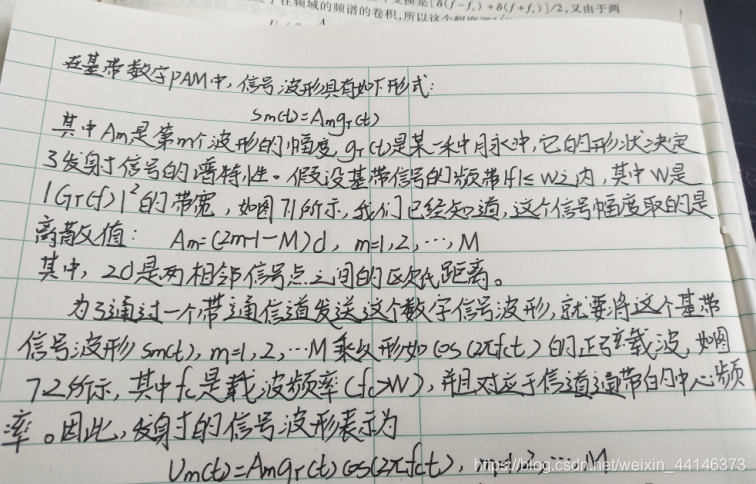 在频域的频谱的卷积,所以这个幅度
是[δ(f-fc)+δ(f+fc)]/2,又由于两
在基带数字PAM中,信号波形具有如下形式:
Sm(t)=Amgr(t)
其中Am是第m个波形的幅度 gr(t)是某一种脉冲,它的形状决定
了发射信号的谱特性。假设基带信号的频带|f|≤W之内,其中W是
|Gr(f)|²的带宽,如图7.1所示,我们已经知道,这个信号幅度取的是
离散值: Am=(2m-1-M)d, m=1,2,…,M
其中,2d是两相邻信号点之间的欧氏距离。
为了通过一个带通信道发送这个数字信号波形,就要将这个基带
信号波形Sm(t),m=1,2,…M乘以形如cos(2πfct)的正弦载波,如图
7.2所示,其中fc是载波频率(fc>W),并且对应于信道通带的中心频
率。因此,发射的信号波形表示为
Um(t)=Amgr(t)cos(2πfct), m=1,2,…,M
https://blog.csdn.net/weixin_44146373